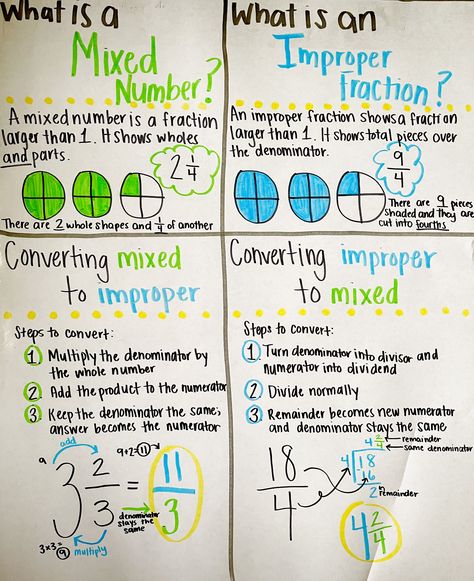 What is a
Mixed
Number?
A mixed number is a fraction
larger than 1. It shows wholes
and parts.
2 1/4
There are 2 whole shapes and 1/4 of another
What is an
Improper
Fraction?
An improper fraction shows a fraction
larger than 1. It shows total pieces over
the denominator.
9/4
There are 9 pieces
shaded and they are
cut into fourths
Converting mixed
to improper
Steps to convert:
1. Multiply the denominator by
the whole number
2. Add the product to the numerator
3. Keep the denominator the same;
answer becomes the numerator
add
9+2=11
9
3 2/3 = 11/3
denominator
stays the
same
3×3=9
multiply
Converting improper
to mixed
Steps to convert:
1 Turn denominator into divisor and
numerator into dividend
2 Divide normally
3 Remainder becomes new numerator
and denominator stays the same
4 2/4
remainder
same denominator
18/4
4 18
-16
2
remainder
4 2/4